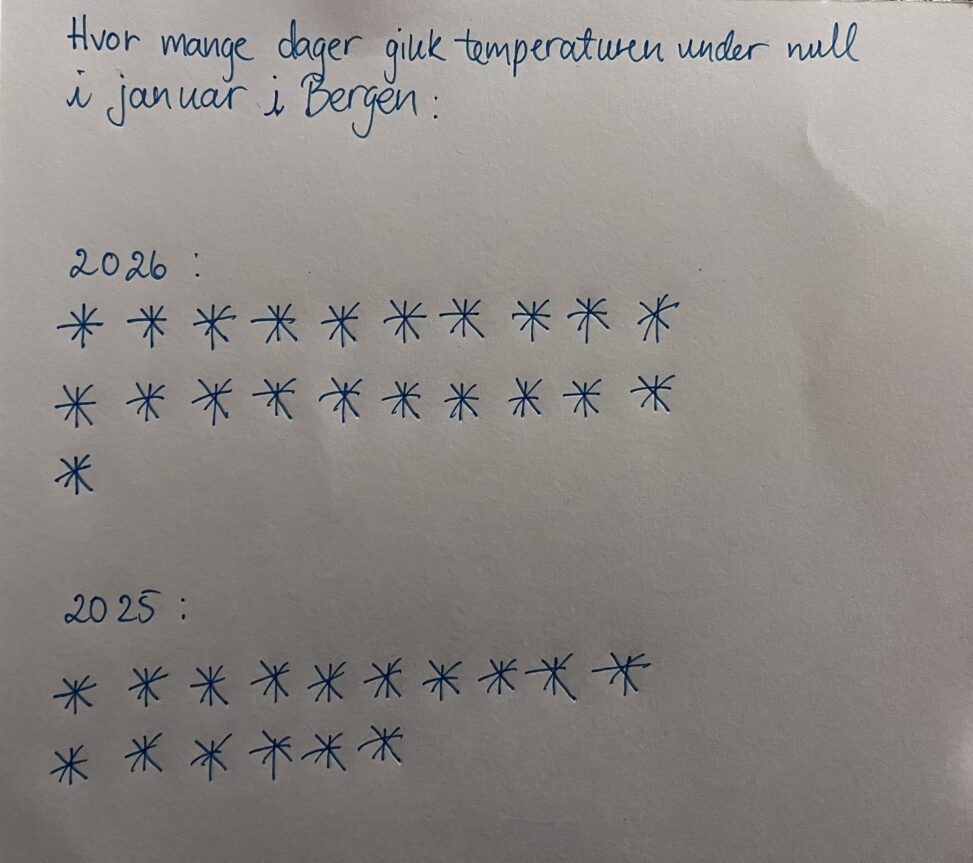 Hvor mange dager gikk temperaturen under null
i januar i Bergen:
2026:
* * * * * * * * * *
* * * * * * * * * *
*
2025:
* * * * * * * * * *
* * * * * *